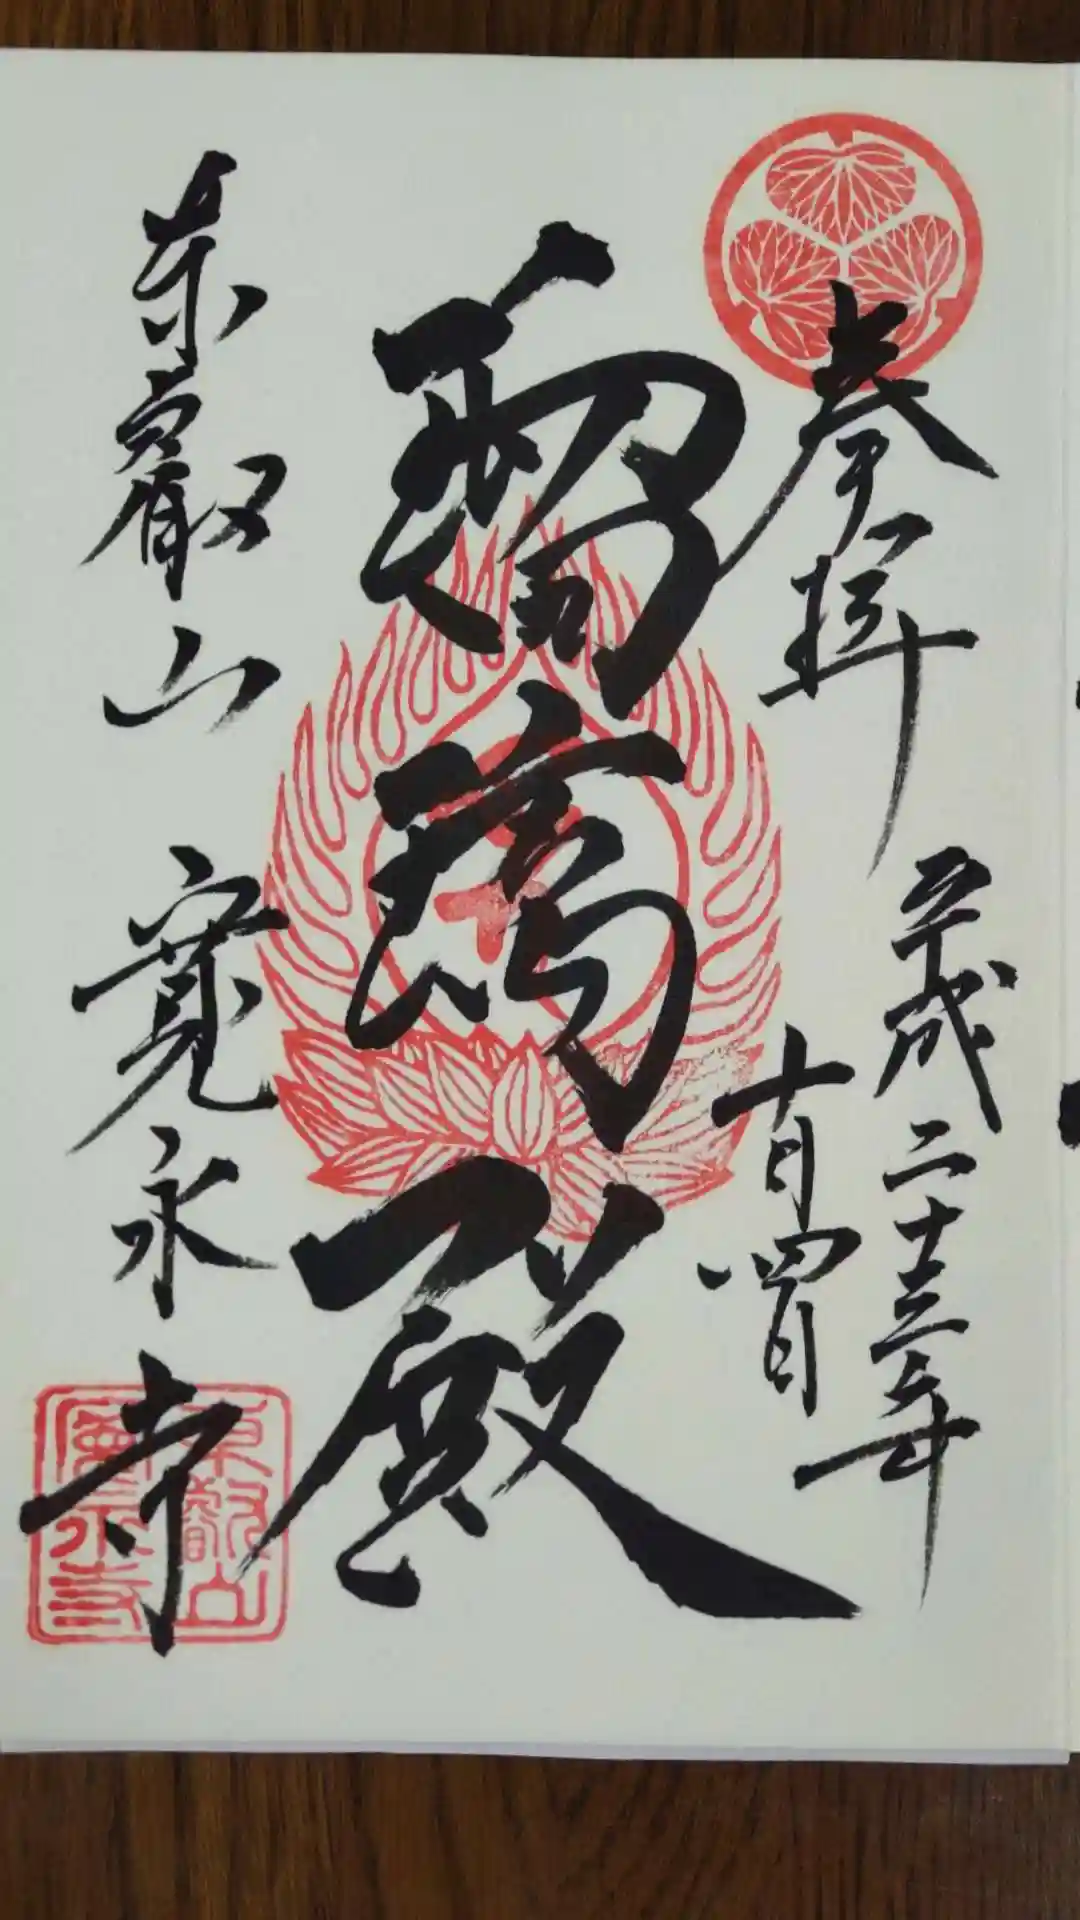 奉拝
平成二十三年
十月四日
瑠璃殿
東叡山
寛永寺
東叡山
寛永寺